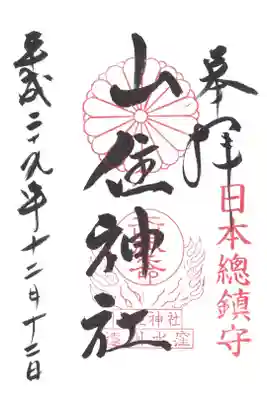 奉拝
日本總鎮守
山住神社
平成二十九年十二月十二日